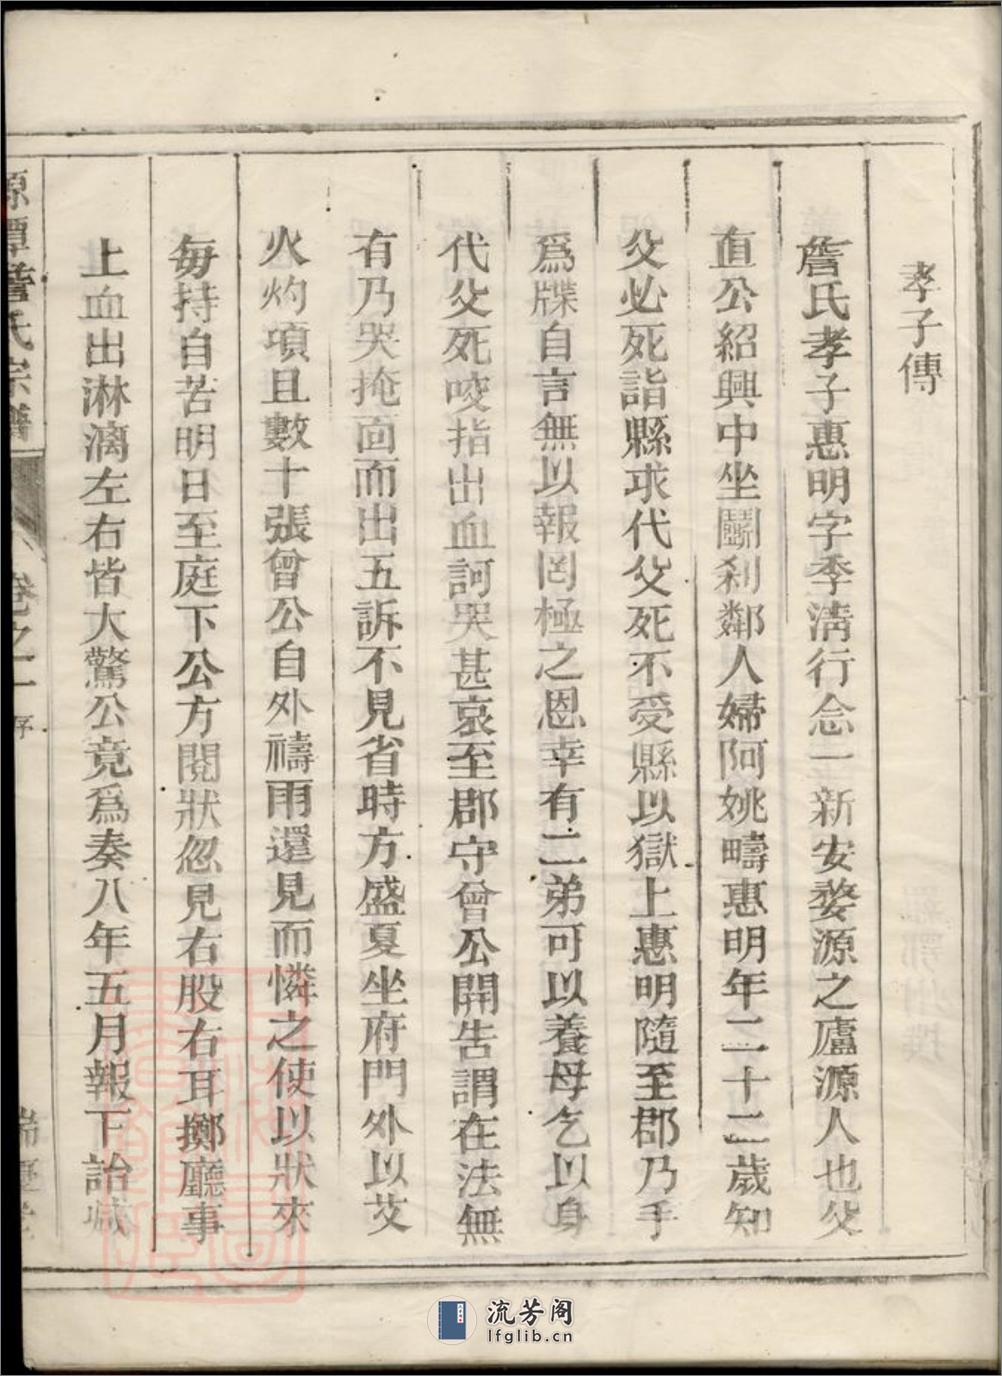 孝子傳
詹氏孝子惠明字季淸行念一新安婺源之廬源人也父
直公紹興中坐鬭刹鄰人婦阿姚疇惠明年二十二歲知
父必死詣縣求代父死不受縣以獄上惠明隨至郡乃手
爲牒自言無以報罔極之恩幸有二弟可以養母乞以身
代父死咬指出血訶哭甚哀至郡守曾公開吿謂在法無
有乃哭掩面而出五訴不見省時方盛夏坐府門外以艾
火灼項且數十張曾公自外禱雨還見而憐之使以狀來
每持自苦明日至庭下公方閱狀忽見右股右耳擲廳事
上血出淋漓左右皆大驚公竟爲奏八年五月報下詒減
源潭詹氏宗譜
卷之一
序
流芳阁
lfglib.cn